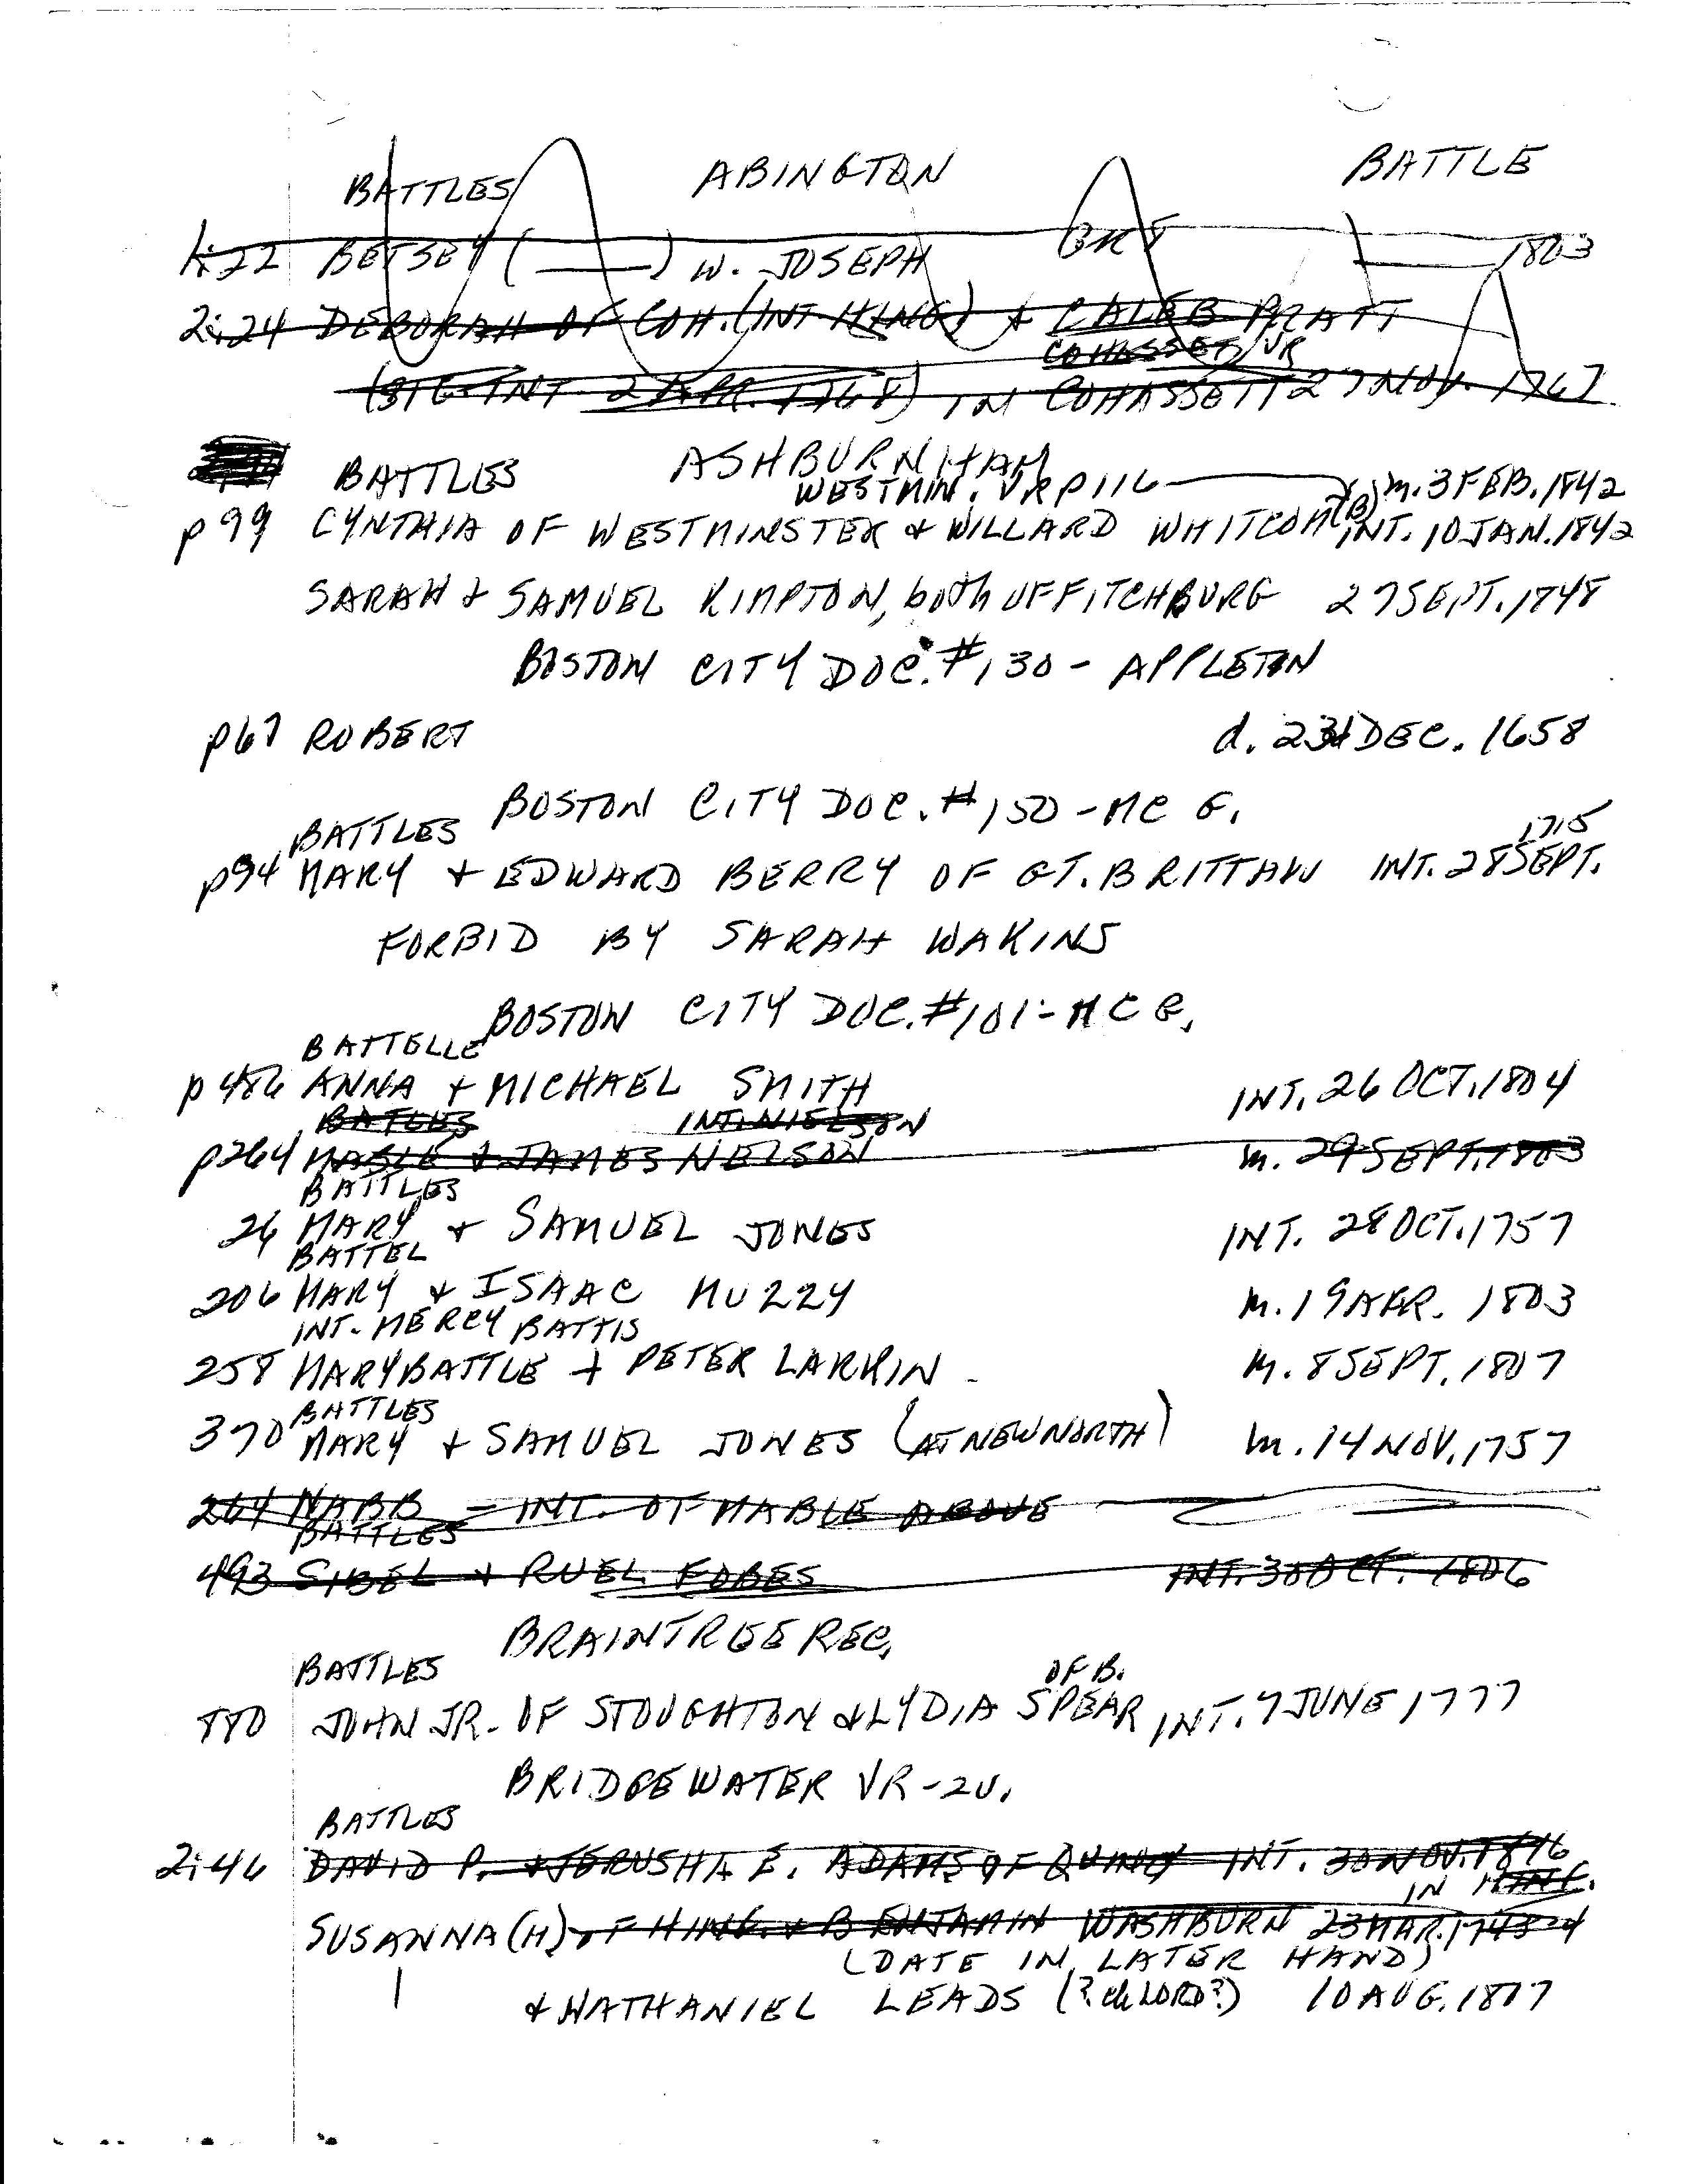 BATTLES ABINGTON BATTLE
1:22 BETSEY ( ——— ) W. JOSEPH GR8 1803
2:24 DEBORAH OF COH. (INT HING) + CALEB PRATT
COHASSET VR
INT 2 APR. 1768) IN COHASSETT 27 NOV. 1767
BATTLES ASHBURNHAM
WESTMIN. VR P116 m. 3 FEB. 1842
p 99 CYNTHIA OF WESTMINSTER + WILLARD WHITCOM(B) INT. 10 JAN. 1842
SARAH + SAMUEL KIMPTON, both OF FITCHBURG 27 SEPT. 1748
BOSTON CITY DOC. #130 - APPLETON
p67 ROBERT d. 23 DEC. 1658
BOSTON CITY DOC. #150 - MC G.
BATTLES 1715
p94 MARY + EDWARD BERRY OF GT. BRITTAIN INT. 28 SEPT.
FORBID BY SARAH WAKINS
BOSTON CITY DOC. #101 - MC G.
BATTELLE
p 486 ANNA + MICHAEL SMITH INT. 26 OCT. 1804
BATTLES INT. NIELSON
p264 MABLE + JAMES NELSON m. 29 SEPT. 1803
BATTLES
26 MARY + SAMUEL JONES INT. 28 OCT. 1757
BATTEL
206 MARY + ISAAC MUZZY m. 19 APR. 1803
INT. MERCY BATTIS
258 MARY BATTLE + PETER LARKIN - m. 8 SEPT. 1807
BATTLES
370 MARY + SAMUEL JONES (AT NEW NORTH) m. 14 NOV. 1757
264 NABB - INT. OF MABLE ABOVE
BATTLES
493 SIBEL + RUEL FOBES INT. 30 OCT. 1806
BRAINTREE REC.
BATTLES OF B.
880 JOHN JR. OF STOUGHTON + LYDIA SPEAR INT. 7 JUNE 1777
BRIDGEWATER VR - 2V.
BATTLES
2:46 DAVID P. + JERUSHA E. ADAMS OF QUINCY INT. 30 NOV. 1846
IN HING.
SUSANNA (H) OF HING. + BENJAMIN WASHBURN 23 MAR. 1743-4
(DATE IN LATER HAND)
+ NATHANIEL LEADS (? LORD?) 10 AUG. 1807